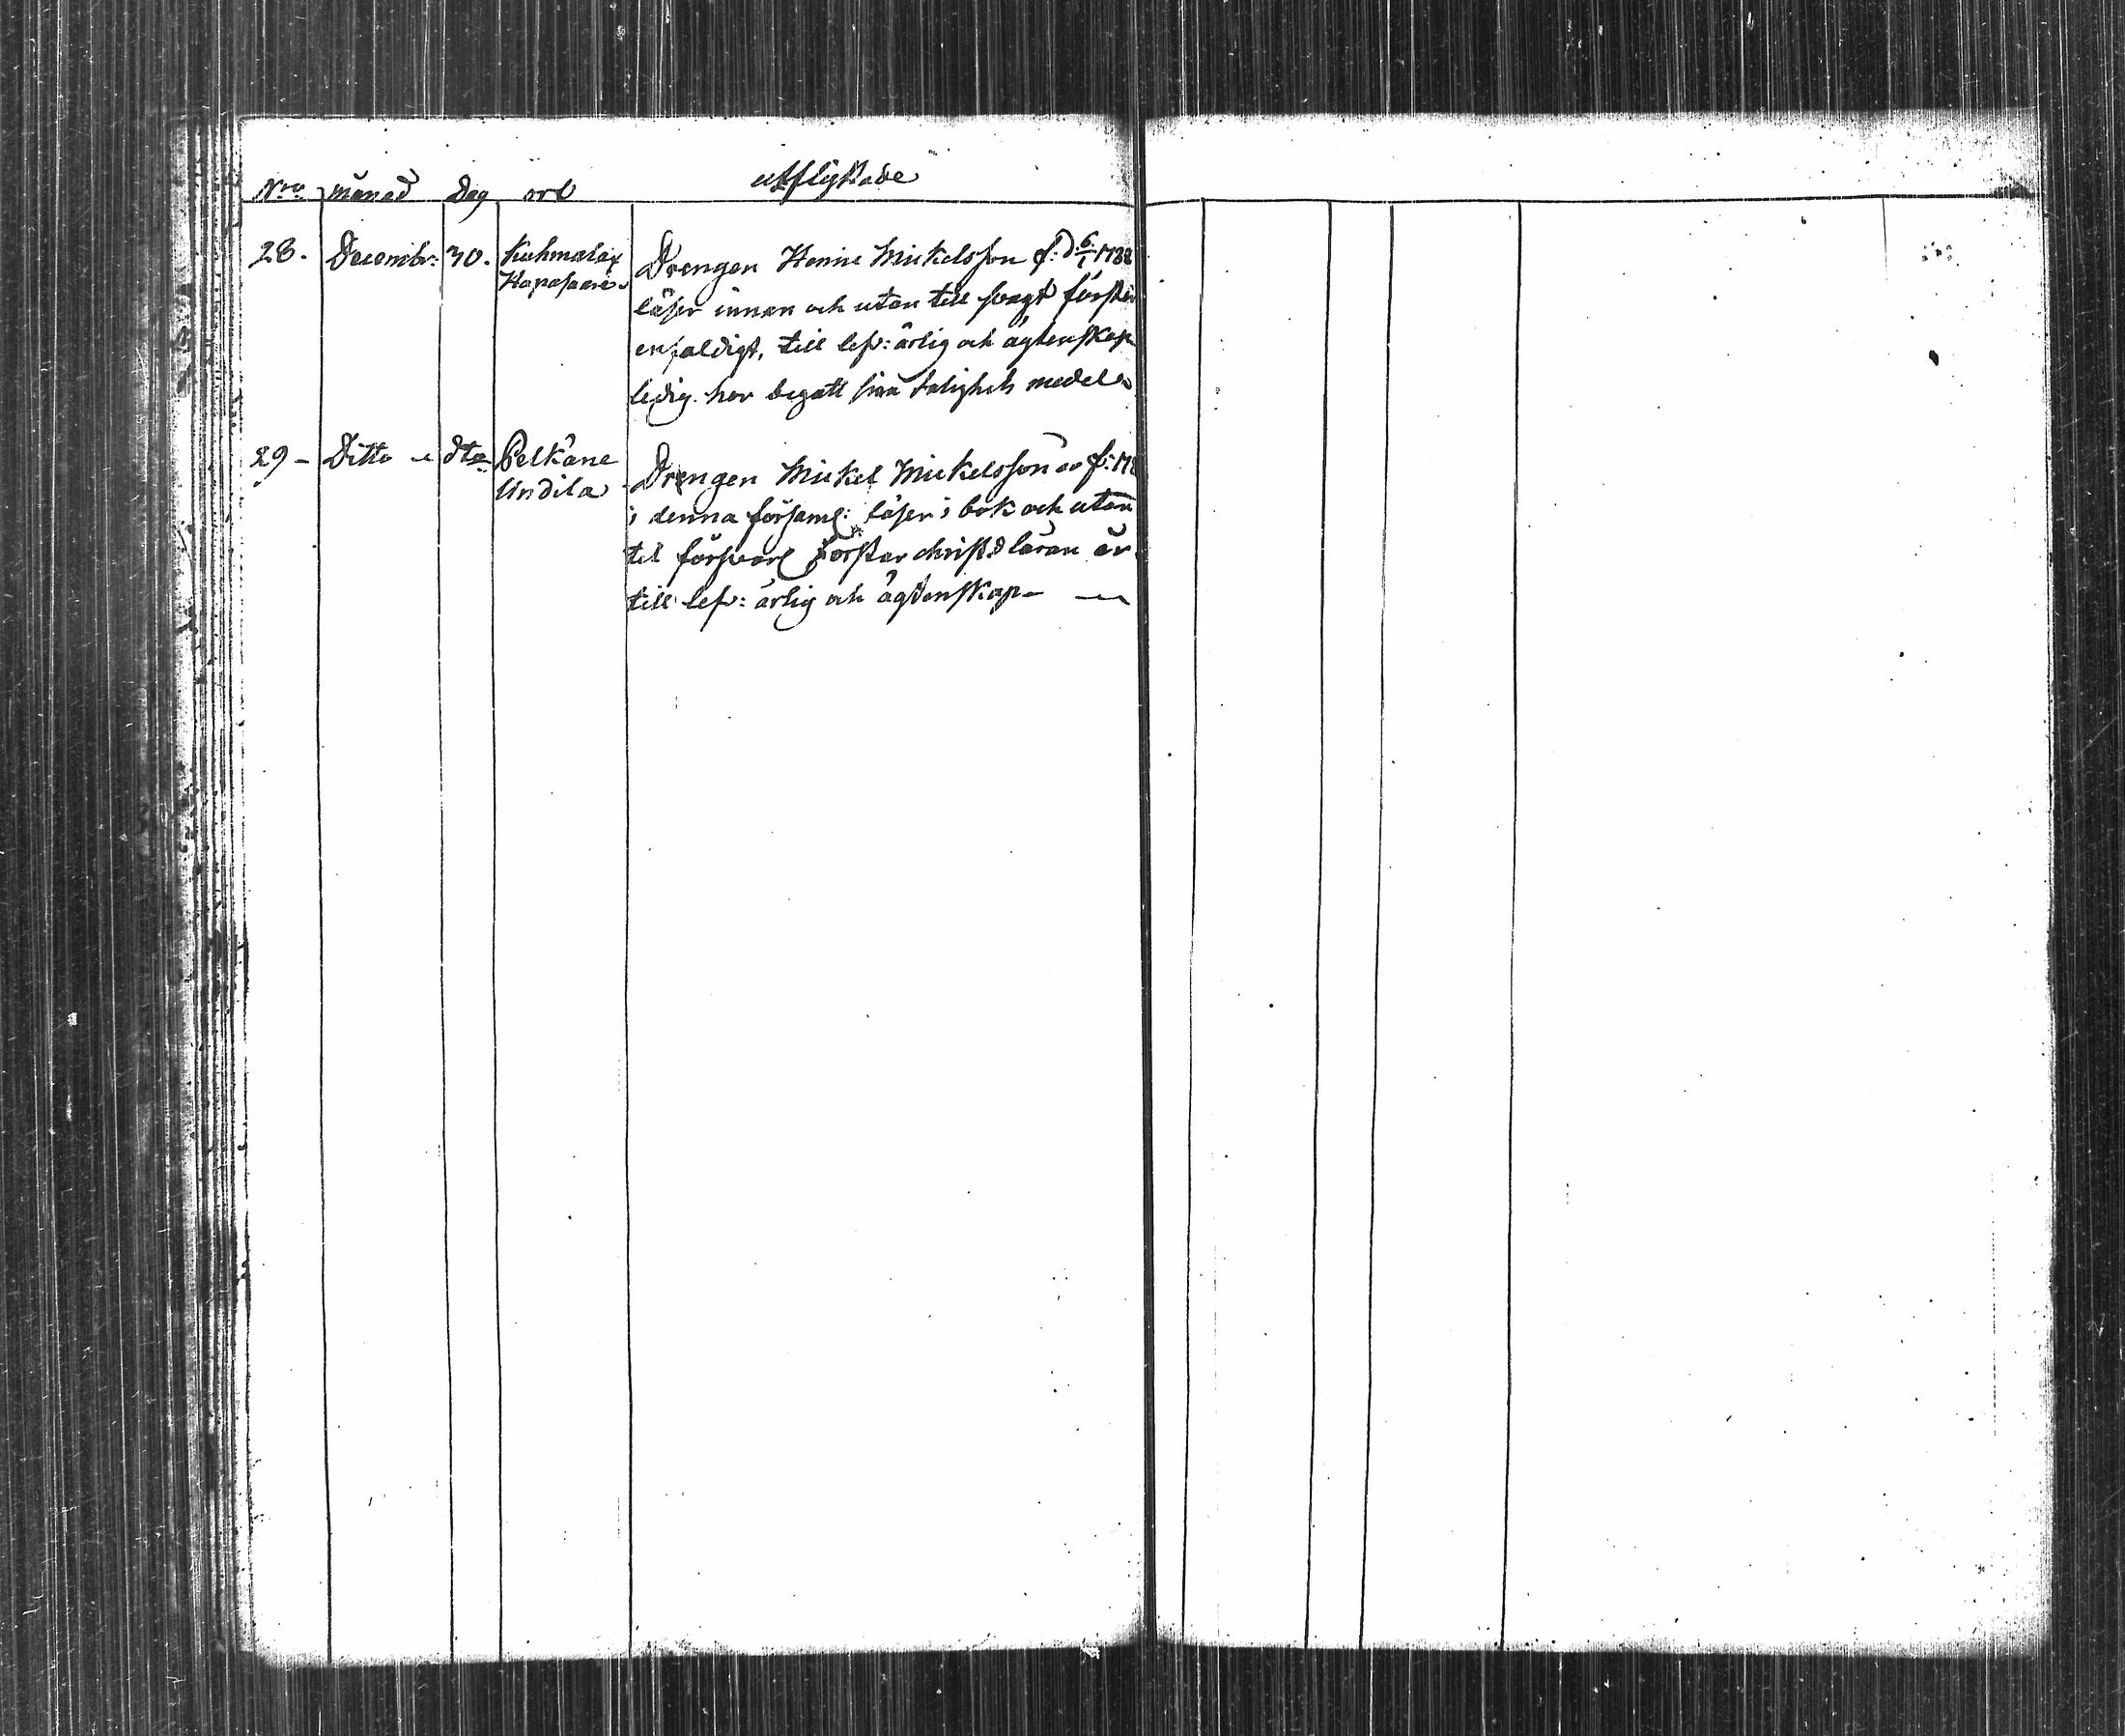 Nro månad Dag ort utflyttade
28. Decembr: 30. Kuhmalax Drengen Henric Mickelsson f: d. 6/1 1788
Hapasaari
läser innan och utan till svagt förstår
enfaldigt, till lefv: ärlig och ägtenskap
ledig. har begått sina salighets medel
29 – Ditto dto Pelkäne Drengen Mickel Mickelsson är f: 178
Undila
i denna församl: läser i bok och utan
til försvarl förstår christd läran är
till lefv: ärlig och ägtenskap –